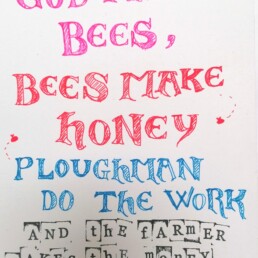 GOD MAKES
BEES,
BEES MAKE
HONEY
PLOUGHMAN
DO THE WORK
AND the fARmER
TAKES the mONEY